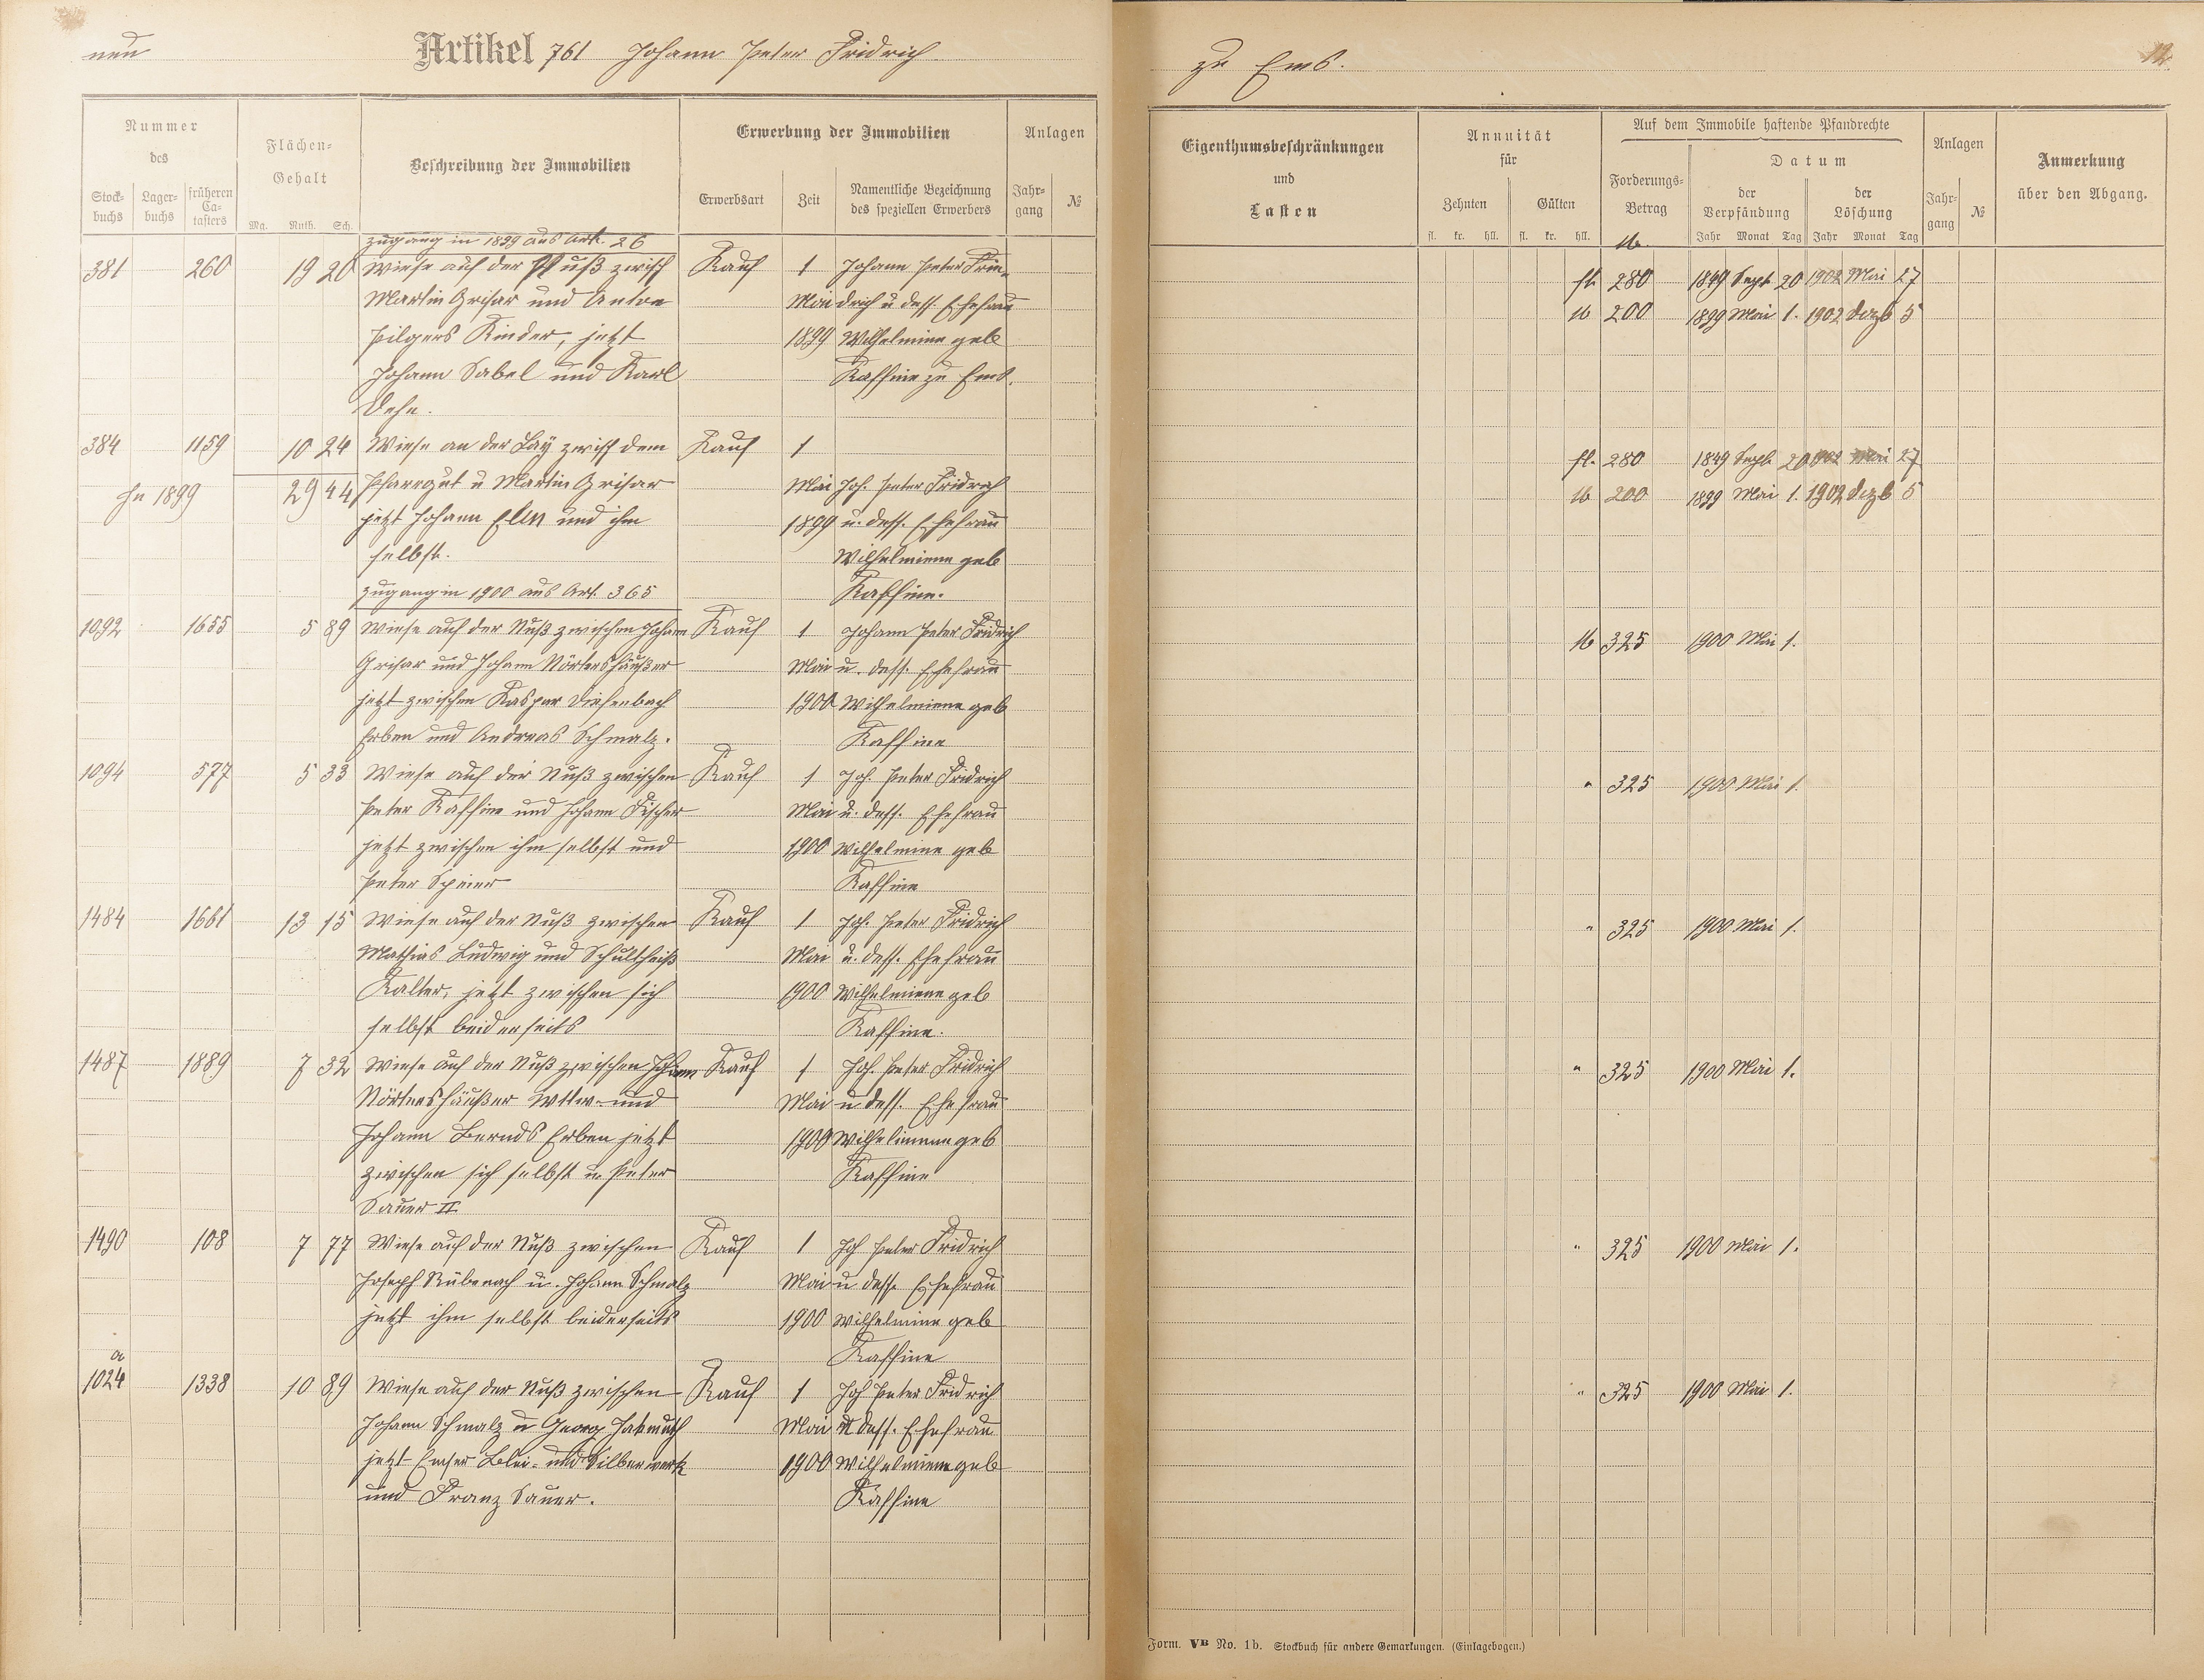 neu
Artikel 761 Johann Peter Fridrich
zu Ems.
12
Nummer des
Stock-buchs
Lager-buchs
früheren Ca-tasters
Flächen-Gehalt
Mg. Ruth. Sch.
Beschreibung der Immobilien
Erwerbung der Immobilien
Erwerbsart
Zeit
Namentliche Bezeichnung des speziellen Erwerbers
Anlagen
Jahr-gang
№
Zugang in 1899 aus Art. 26
381 260 19 20 Wiese auf der Nuß zwisch Kauf 1 Johann Peter Frie-
Martin Grisar und Anton Mai drich u dess. Ehefrau
Pilgers Kinder, jetzt 1899 Wilhelmine geb
Johann Sabel und Karl Kaffine zu Ems.
Dehe.
384 1159 10 24 Wiese an der Lay zwisch dem Kauf 1
In 1899 29 44 Pfarrgut u Martin Grisar Mai Joh. Peter Fridrich
jetzt Johann und ihm 1899 u. dess. Ehefrau
selbst. Wilhelmine geb
Zugang in 1900 aus Art. 365 Kaffine.
1092 1655 5 89 Wiese auf der Nuß zwischen Johann Kauf 1 Johann Peter Fridrich
Grisar und Johann Nörtershäußer Mai u. dess. Ehefrau
jetzt zwischen Kaspar Diefenbach 1900 Wilhelmiene geb
Erben und Andreas Schmalz. Kaffine
1094 577 5 33 Wiese auf der Nuß zwischen Kauf 1 Joh. Peter Fridrich
Peter Kaffine und Johann Fischer Mai u. dess. Ehefrau
jetzt zwischen ihm selbst und 1900 Wilhelmine geb
Peter Kaffine
1484 1661 13 15 Wiese auf der Nuß zwischen Kauf 1 Joh. Peter Fridrich
Mathias Ludwig und Schultheiß Mai u. dess. Ehefrau
Kalter, jetzt zwischen sich 1900 Wilhelmiene geb
selbst beiderseits Kaffine.
1487 1889 7 32 Wiese auf der Nuß zwischen Johann Kauf 1 Joh. Peter Fridrich
Nörtershäußer Wttw. und Mai u dess. Ehefrau
Johann Bernds Erben jetzt 1900 Wilhelmine geb
zwischen sich selbst u. Peter Kaffine
Sauer II
1490 108 7 77 Wiese auf der Nuß zwischen Kauf 1 Joh Peter Fridrich
Joseph Rübenach u. Johann Schmalz Mai u dess. Ehefrau
jetzt ihm selbst beiderseits 1900 Wilhelmine geb
Kaffine
a
1024 1338 10 89 Wiese auf der Nuß zwischen Kauf 1 Joh Peter Fridrich
Johann Schmalz u Georg Mai u dess. Ehefrau
jetzt Emser Blei- und Silberwerk 1900 Wilhelmiene geb
und Franz Sauer. Kaffine
Eigenthumsbeschränkungen und Lasten
Annuität für
Zehnten
Gülten
fl. kr. hll. fl. kr. hll.
Auf dem Immobile haftende Pfandrechte
Forderungs-Betrag
M.
Datum
der Verpfändung
der Löschung
Jahr Monat Tag Jahr Monat Tag
Anlagen
Jahr-gang
№
Anmerkung über den Abgang.
fl. 280 1849 Sept 20 1902 Mai 27
M 200 1899 Mai 1. 1902 Dezb 5
fl. 280 1849 Septb 20 1902 Mai 27
M 200 1899 Mai 1. 1902 Dezb 5
M 325 1900 Mai 1.
" 325 1900 Mai 1.
" 325 1900 Mai 1.
" 325 1900 Mai 1.
" 325 1900 Mai 1.
" 325 1900 Mai 1.
Form. VB No. 1b. Stockbuch für andere Gemarkungen. (Einlagebogen.)